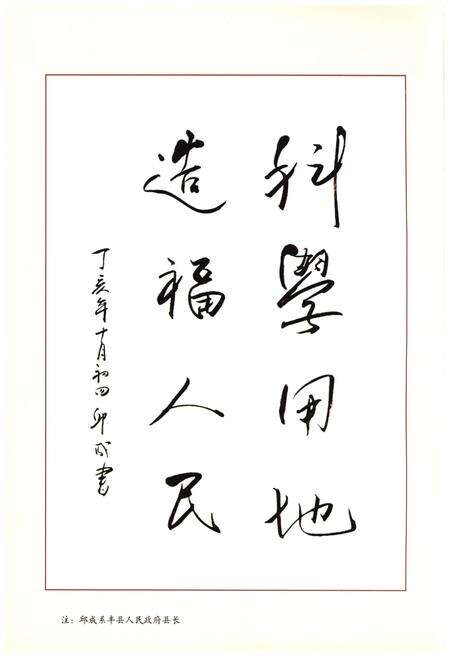 科學用地
造福人民
丁亥年十月初四 邱成書
注：邱成系东丰县人民政府县长